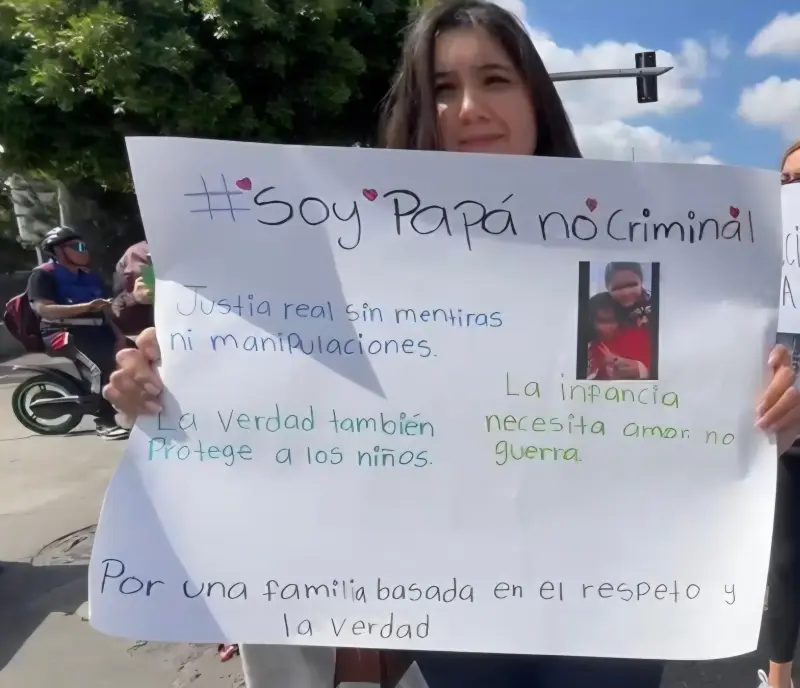 #Soy Papá no Criminal
Justia real sin mentiras
ni manipulaciones.
La verdad también
Protege a los niños.
La infancia
necesita amor, no
guerra.
Por una familia basada en el respeto y
la verdad